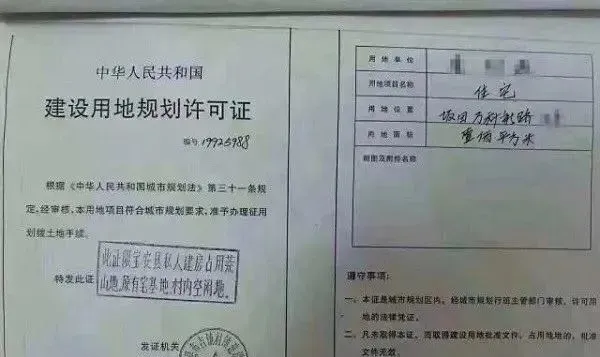 中华人民共和国
建设用地规划许可证
编号 19925988
根据《中华人民共和国城市规划法》第三十一条规
定,经审核,本用地项目符合城市规划要求,准予办理征用
划拨土地手续。
特发此证
此证限宝安县私人建房占用荒
山地、原有宅基地、村内空闲地。
发证机关
用地单位
用地项目名称 住宅
用地位置 坂田万科
用地面积 壹佰平方米
附图及附件名称
遵守事项:
一、本证是城市规划区内,经城市规划行政主管部门审核,许可用
地的法律凭证。
二、凡未取得本证,而取得建设用地批准文件、占用地的,批准
文件无效。